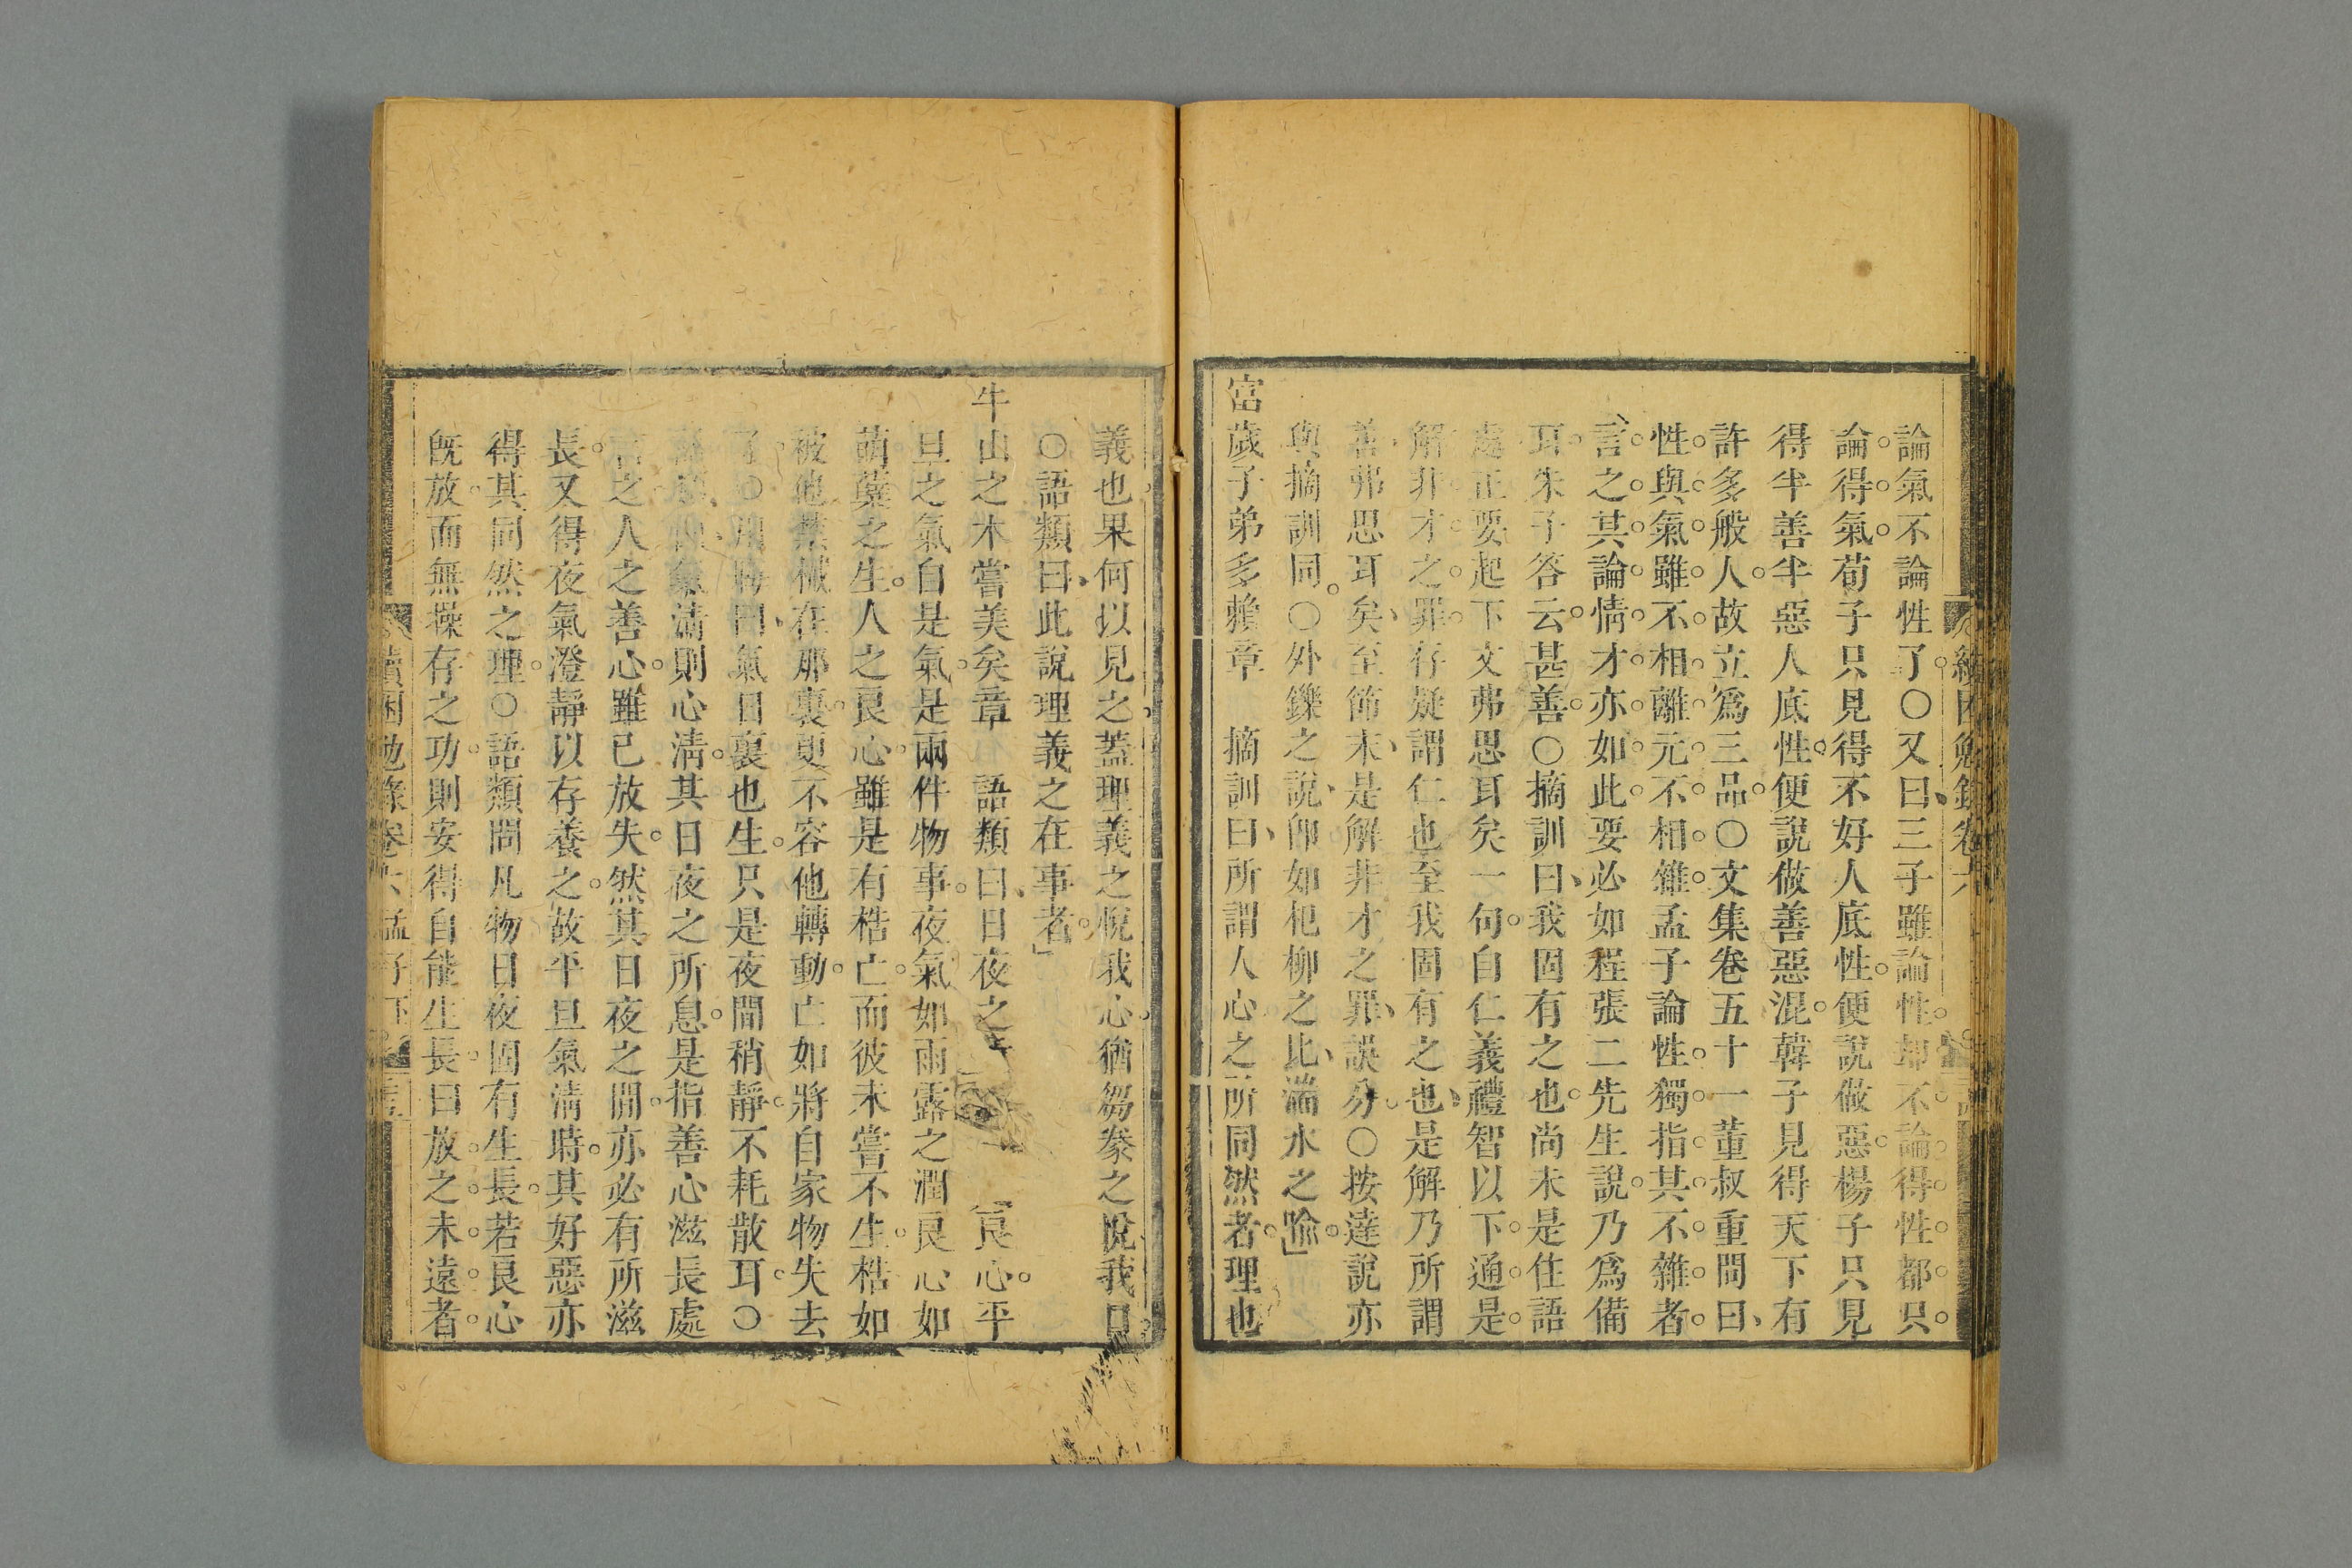 續困勉錄卷六
論氣不論性了○又曰三子雖論性却不論得性都只
論得氣荀子只見得不好人底性便說做惡楊子只見
得半善半惡人底性便說做善惡混韓子見得天下有
許多般人故立爲三品○文集卷五十一董叔重問曰
性與氣雖不相離元不相雜孟子論性獨指其不雜者
言之其論情才亦如此要必如程張二先生說乃爲備
耳朱子答云甚善○摘訓曰我固有之也尚未是住語
處正要起下文弗思耳矣一句自仁義禮智以下通是
解非才之罪存疑謂仁也至我固有之也是解乃所謂
善弗思耳矣至節末是解非才之罪誤分○按達說亦
與摘訓同○外鑠之說卽如杞柳之比湍水之喩
富歲子弟多賴章 摘訓曰所謂人心之所同然者理也
義也果何以見之蓋理義之悅我心猶芻豢之悅我口
○語類曰此說理義之在事者
牛山之木嘗美矣章 語類曰日夜之 良心平
旦之氣自是氣是兩件物事夜氣如雨露之潤良心如
萌蘖之生人之良心雖是有梏亡而彼未嘗不生梏如
被他禁械在那裏更不容他轉動亡如將自家物失去
了○ 曰氣日裏也生只是夜間稍靜不耗散耳○
氣淸則心淸其日夜之所息是指善心滋長處
言之人之善心雖已放失然其日夜之間亦必有所滋
長又得夜氣澄靜以存養之故平旦氣淸時其好惡亦
得其同然之理○語類問凡物日夜固有生長若良心
旣放而無操存之功則安得自能生長曰放之未遠者
續困勉錄卷六孟子下